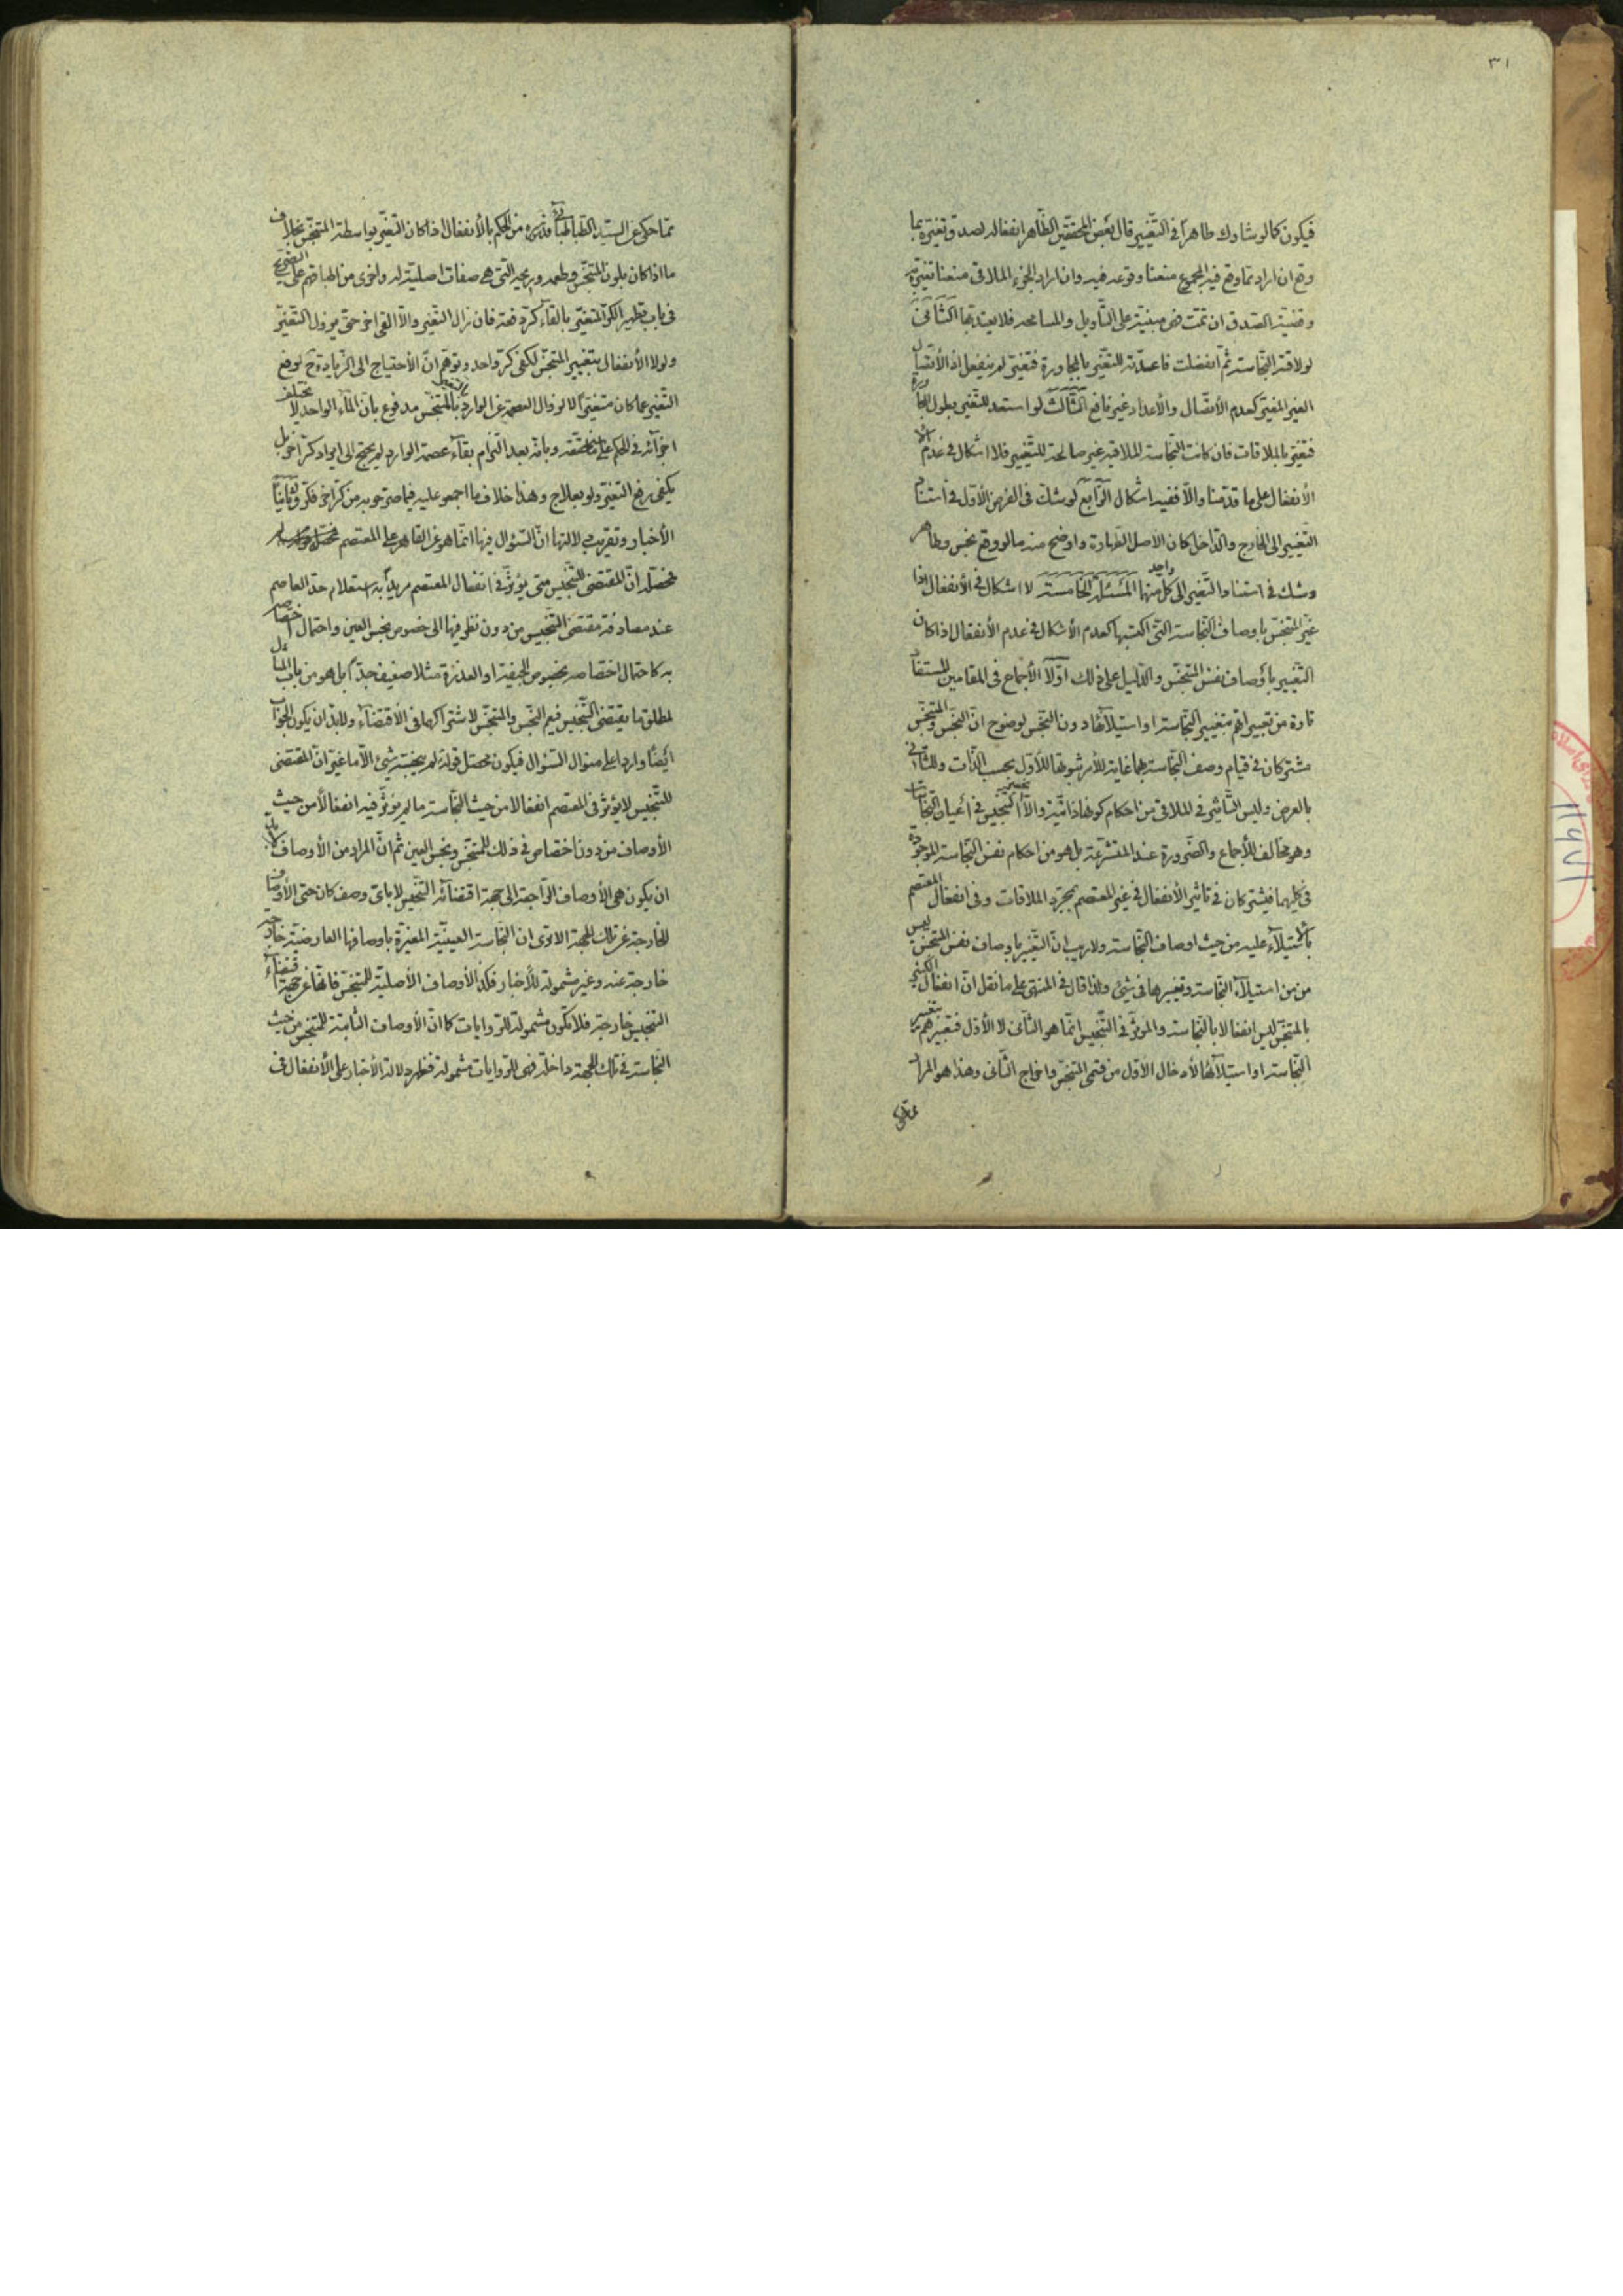 ٣١
فيكون كما لو شارك طاهراً في التّغيير قال بعض المحققين الظّاهر انفعاله لصدق تغيّره بما
وقع ان اراد بما وقع فيه المجموع منعنا وقوعه فيه وان اراد الجزء الملاقى منعنا تغيّره به
وقضيّة الصّدق ان تمّت فهى مبنيّة على التّأويل والمسامحة فلا يعتد بها الثّانى
لو لاقته النّجاسة ثمّ انفصلت فاعدّته للتغيّر بالمجاورة فتغيّر لم ينفعل اذ الأتّصال
الغير المغيّر كعدم الأتّصال والأعداد غير نافع الثّالث لو استعد للتغيّر بطول المجاورة
فتغيّر بالملاقات فان كانت النّجاسة الملاقية غير صالحة للتّغيير فلا اشكال في عدم
الأنفعال على ما قدّمنا والّا ففيه اشكال الرّابع لو شكّ في الفرض الأوّل في استناد
التّغيير الى الخارج والدّاخل كان الأصل الطّهارة واوضح منه ما لو وقع نجس وطاهر
وشك في استناد التّغير الى كلّ واحد منهما المسئلة الخامسة لا اشكال في الأنفعال اذا
غيّر المتنجّس باوصاف النّجاسة الّتى اكتسبها كعدم الأشكال في عدم الأنفعال اذا كان
التّغيير بأوصاف نفس المتنجّس والدّليل على ذلك اوّلاً الأجماع في المقامين المستفاد
تارة من تعبيراتهم بتغيير النّجاسة او استيلائها دون النّجس لوضوح انّ النّجس والمتنجّس
مشتركان في قيام وصف النّجاسة بهما غاية الأمر ثبوتها للأوّل بحسب الذّات وللثّانى
بالعرض وليس التّأثير في الملاقى من احكام كونها ذاتيّة والّا التنجيس في أعيان النّجاسات
وهو مخالف للأجماع والضّرورة عند المتشرّعة بل هو من احكام نفس النّجاسة الموجودة
في كليهما فيشتركان في تاثير الأنفعال في غير المعتصم بمجرّد الملاقات وفى انفعال المعتصم
بأستيلاء عليه من حيث اوصاف النّجاسة ولا ريب انّ التّغيّر باوصاف نفس المتنجّس ليس
من استيلاء النّجاسة وتغييرها في شيئ ولذا قال في المنتهى على ما نقل انّ انفعال الكثير
بالمتنجّس ليس انفعالا بالنّجاسة والمؤثّر في التّنجيس انّما هو الثّانى لا الأوّل فتعبيرهم بتغيير
النّجاسة او استيلائها لأدخال الأوّل من قسمى المتنجّس واخراج الثّانى وهذا هو المراد
ممّا حكى عن السيّد الطّباطبائى من الحكم بالأنفعال اذا كان التّغيّر بواسطة المتنجّس بخلاف
ما اذا كان بلون المتنجّس وطعمه وريحه التّى هى صفات اصليّة له واخرى من اطباقهم على
فى باب تطهير الكرّ المتغيّر بالقاء كرّ دفعة فان زال التّغير والّا القى اخر حتّى يزول التّغيّر
ولولا الأنفعال بتغيير المتنجّس لكفى كرّ واحد وتوهّم انّ الأحتياج الى الزّيادة ح لرفع
التّغير عمّا كان متغيّراً لا لزوال العصمة عن الوارد بالمتنجّس مدفوع بأن الماء الواحد لا يختلف
اجزائه في الحكم وبأنّه بعد التزام بقاء عصمة الوارد لم يحتج الى ايراد كرّ آخر بل
يكفى رفع التّغيّر ولو بعلاج وهذا خلاف ما اجمعوا عليه فيما صرّحوا به من كرّ اخر فكرّ وثانياً
الأخبار وتقريب دلالتها انّ السّؤال فيها انّما هو عن القاهر على المعتصم
فحصّله انّ المقتضى للتّنجيس متى يؤثّر في انفعال المعتصم مريداً به استعلام حدّ العاصم
عند مصادفة مقتضى التّنجيس من دون نظر فيها الى خصوص نجس العين واحتمال اختصاصه
به كاحتمال اختصاصه بخصوص الجيفة او العذرة مثلا ضعيف جدّاً بل هو من باب المثال
لمطلق ما يقتضى التّنجيس فيعم النّجس والمتنجّس لاشتراكهما فى الأقتضاء ولابدّ ان يكون الجواب
أيضاً وارداً على منوال السّؤال فيكون محصّل قوله لم ينجّسه شيئ الّا ما غيّر انّ المقتضى
للتّنجيس لا يؤثّر فى المعتصم انفعالا من حيث النّجاسة ما لم يؤثّر فيه انفعالاً من حيث
الأوصاف من دون اختصاص في ذلك للمتنجّس ونجس العين ثمّ انّ المراد من الأوصاف لابدّ
ان يكون هى الأوصاف الرّاجعة الى جهة اقتضائه التّنجيس لا باىّ وصف كان حتى الأوصاف
الخارجة عن تلك الجهة الا ترى ان النّجاسة العينيّة المغيّرة باوصافها العارضيّة خارجة
خارجة عنه وغير مشمولة للأخبار فكذا الأوصاف الأصليّة للمتنجّس فانّها عن جهة اقتضاء
التنجيس خارجة فلا تكون مشمولة للرّوايات كما انّ الأوصاف الثّابتة للمتنجّس من حيث
النّجاسة في تلك الجهة داخلة فهى للرّوايات مشمولة فظهر دلالة الأخبار على الأنفعال فى